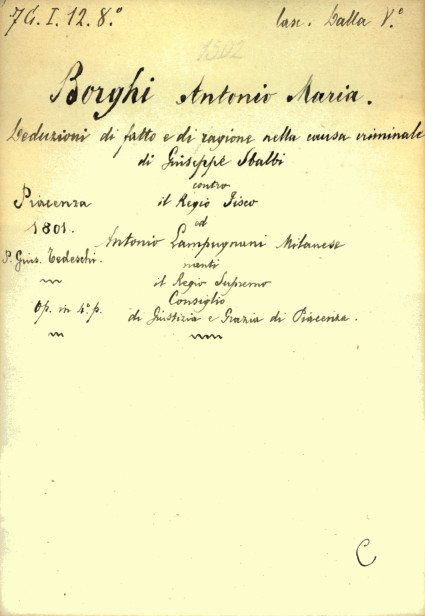 7G. I. 12. 8.º
Cas. Dalla V.e
1502
Borghi Antonio Maria.
Deduzioni di fatto e di ragione nella causa criminale
di Giuseppe Sbalbi
contro
il Regio Fisco
ed
Antonio Lampugnani Milanese
nanti
il Regio Supremo
Consiglio
di Giustizia e Grazia di Piacenza.
Piacenza
1801.
P. Gius. Tedeschi.
Op. in 4.º p.
C